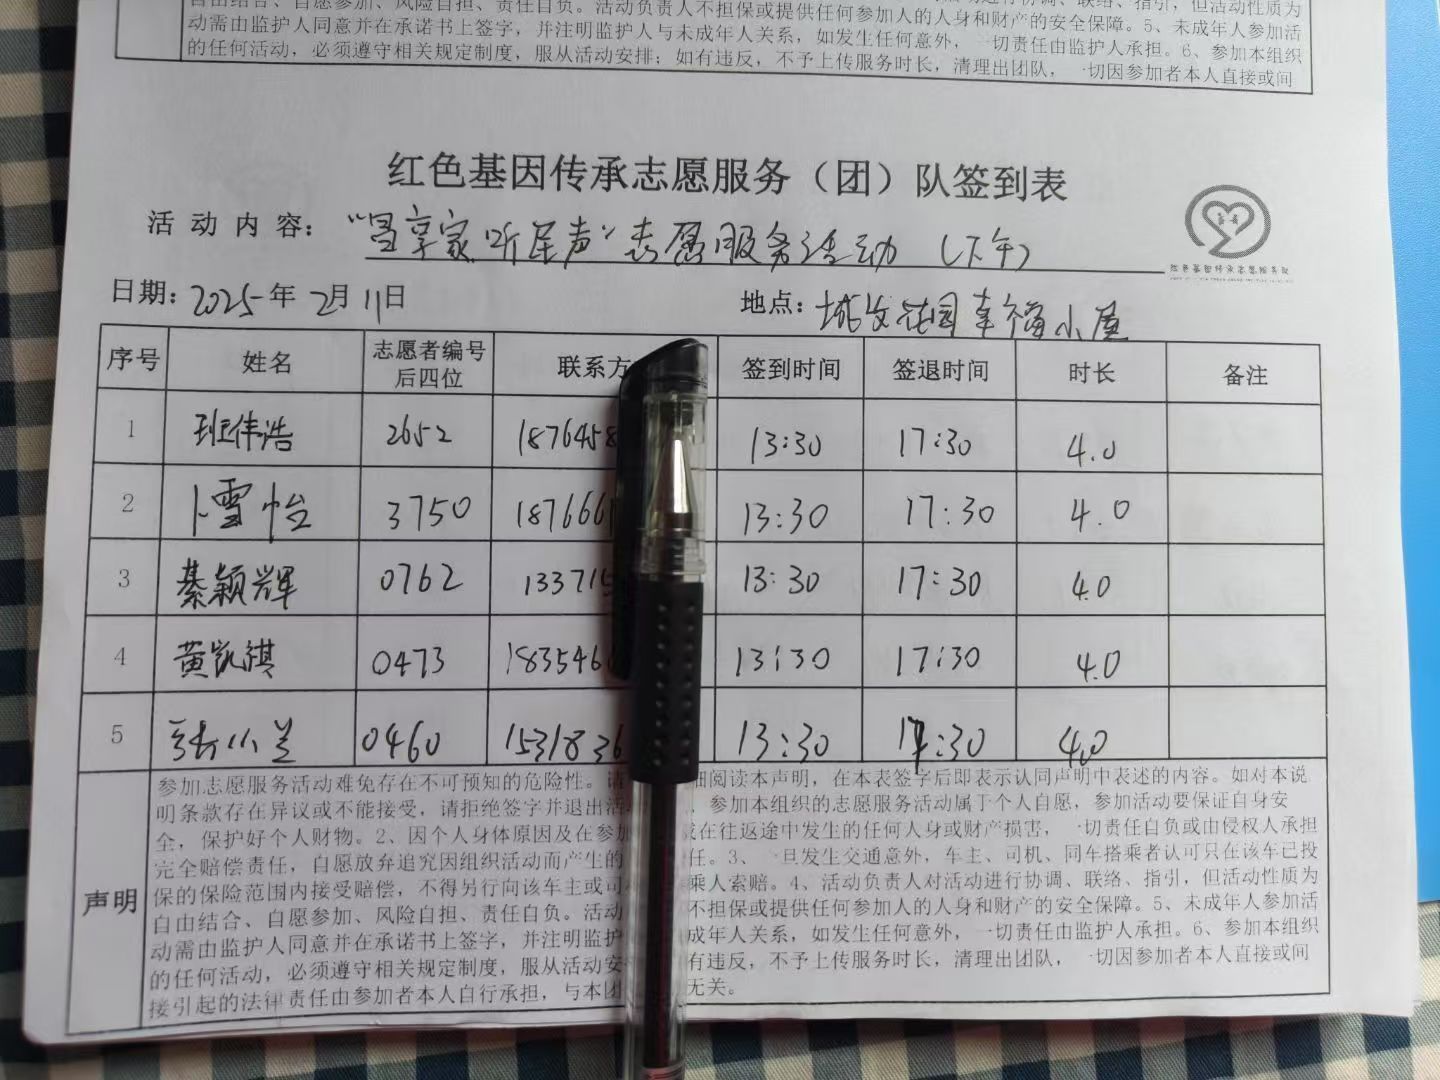 自由结合、自愿参加、风险自担、责任自负。活动负责人不担保或提供任何参加人的人身和财产的安全保障。5、未成年人参加活
动需由监护人同意并在承诺书上签字，并注明监护人与未成年人关系，如发生任何意外，一切责任由监护人承担。6、参加本组织
的任何活动，必须遵守相关规定制度，服从活动安排；如有违反，不予上传服务时长，清理出团队，一切因参加者本人直接或间
红色基因传承志愿服务（团）队签到表
活动内容：“昌享家 听民声”志愿服务活动（下午）
红色基因传承志愿服务队
日期：2025年2月11日 地点：城发花园幸福小屋
序号 姓名 志愿者编号后四位 联系方 签到时间 签退时间 时长 备注
1 班伟浩 2652 1876458 13:30 17:30 4.0
2 卜雪怡 3750 1876661 13:30 17:30 4.0
3 綦颖辉 0762 133715 13:30 17:30 4.0
4 黄凯祺 0473 1835460 13:30 17:30 4.0
5 张小兰 0460 1531836 13:30 17:30 4.0
声明
参加志愿服务活动难免存在不可预知的危险性。请 细阅读本声明，在本表签字后即表示认同声明中表述的内容。如对本说
明条款存在异议或不能接受，请拒绝签字并退出活 、参加本组织的志愿服务活动属于个人自愿，参加活动要保证自身安
全，保护好个人财物。2、因个人身体原因及在参加 或在往返途中发生的任何人身或财产损害，一切责任自负或由侵权人承担
完全赔偿责任，自愿放弃追究因组织活动而产生的 任。3、一旦发生交通意外，车主、司机、同车搭乘者认可只在该车已投
保的保险范围内接受赔偿，不得另行向该车主或司 乘人索赔。4、活动负责人对活动进行协调、联络、指引，但活动性质为
自由结合、自愿参加、风险自担、责任自负。活动 不担保或提供任何参加人的人身和财产的安全保障。5、未成年人参加活
动需由监护人同意并在承诺书上签字，并注明监护 成年人关系，如发生任何意外，一切责任由监护人承担。6、参加本组织
的任何活动，必须遵守相关规定制度，服从活动安 有违反，不予上传服务时长，清理出团队，一切因参加者本人直接或间
接引起的法律责任由参加者本人自行承担，与本团 无关。